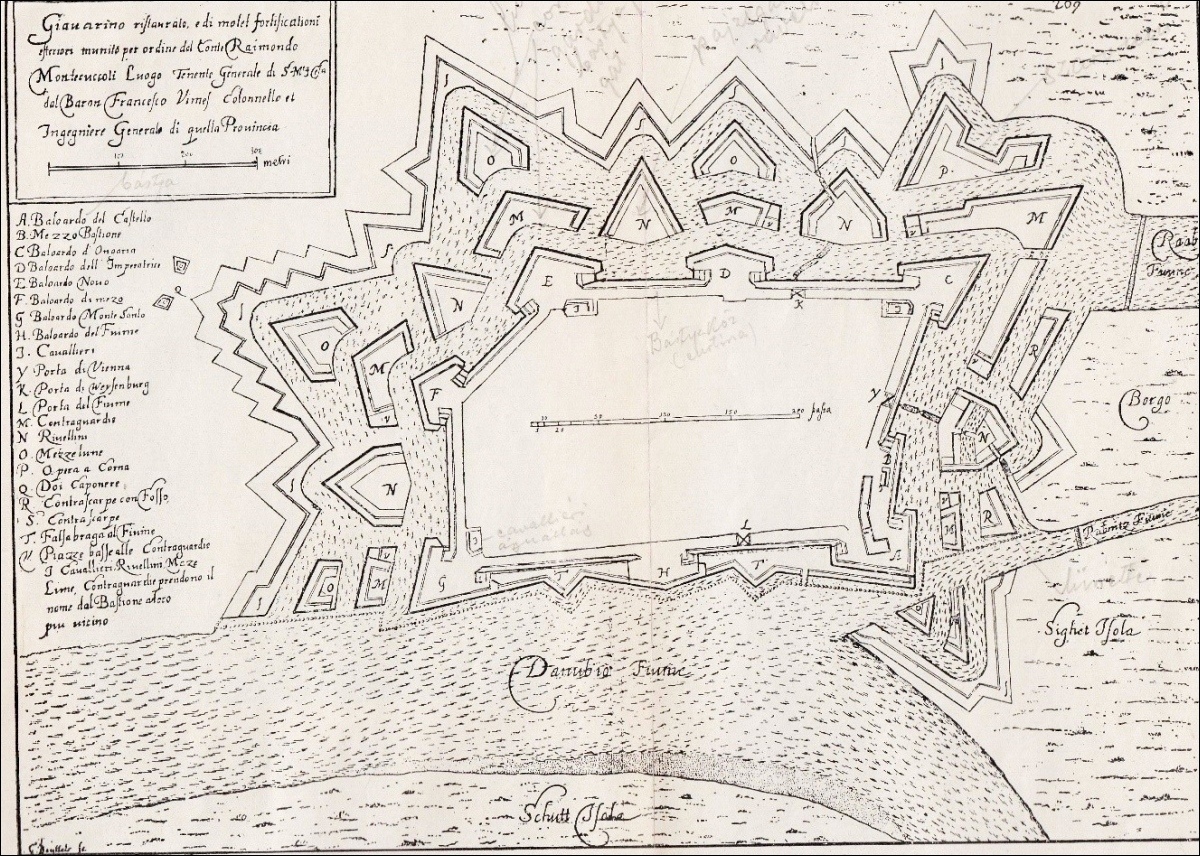 Giavarino ristaurato, e di molte fortificationi
esteriori munito per ordine del Conte Raimondo
Montecuccoli Luogo Tenente Generale di S. M.
dal Baron Francesco Vimes Colonnello et
Ingegniere Generale di quella Provincia
100 200 300 metri
bástya
A. Baloardo del Castello
B. Mezzo Bastione
C Baloardo d'Ongaria
D Baloardo dell'Imperatrice
E Baloardo Novo
F. Baloardo di mezo
G Baloardo Monte Santo
H. Baloardo del Fiume
J. Cavallieri
Y Porta di Vienna
K. Porta di Weysenburg
L Porta del Fiume
M. Contraguardie
N Rivellini
O. Mezzelune
P. Opera a Corna
Q Doi Caponere
R Contrascarpe con Fosso
S Contrascarpe
T. Falsabraga al Fiume
V Piazze basse alle Contraguardie
J Cavallieri, Rivellini, Meze
Lune, Contraguardie prendono il
nome dal Bastione a loro
piu vicino
209
Raab
Fiume
Borgo
Sighet Isola
Danubio Fiume
Schutt Isola
10 20 50 100 150 200 passa
cavallieri
E
D
C
F
G
H
L
K
Y
P.
M
M
M
M
M
N
N
N
N
N
O
O
O
O
R
R
T
T